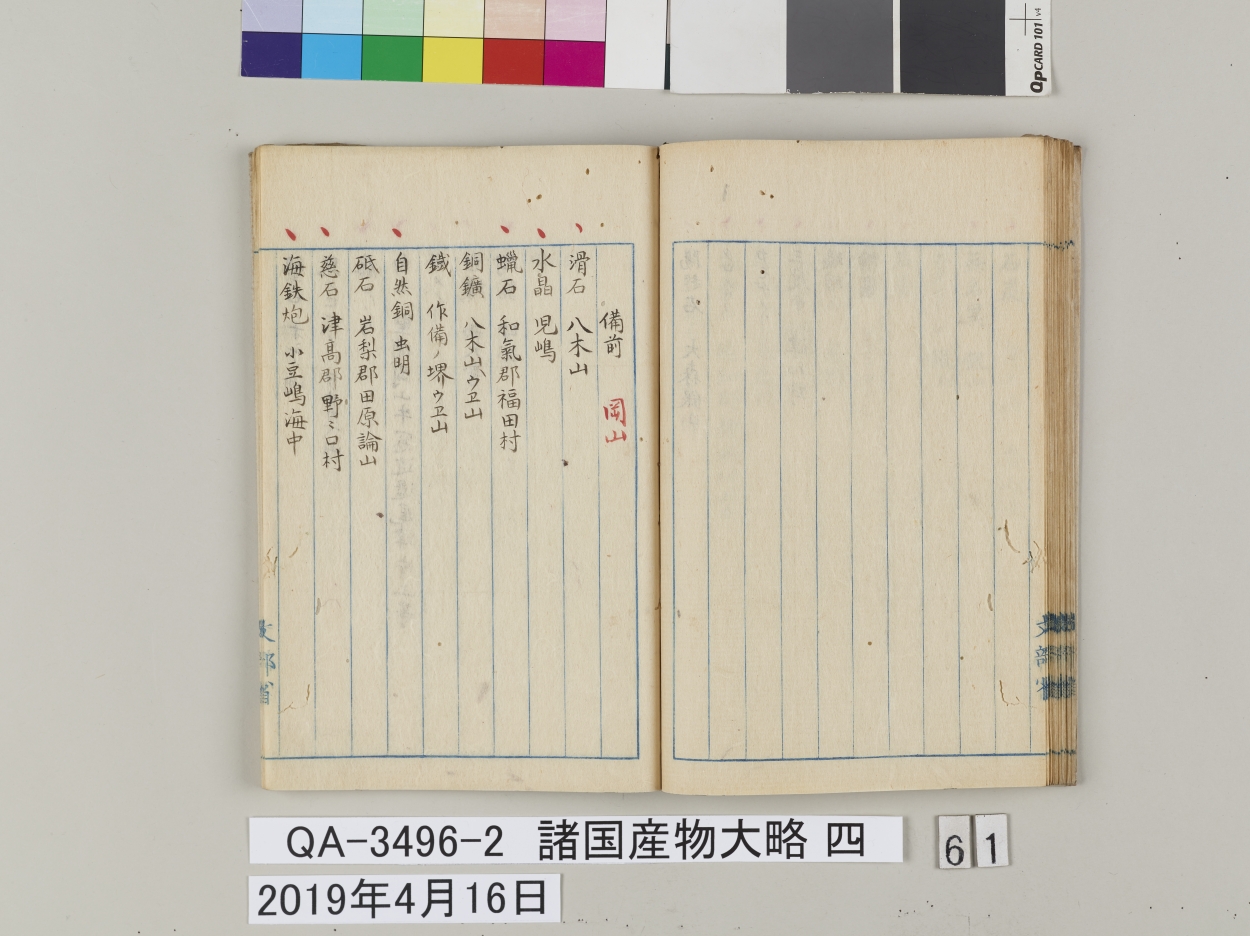 QpCARD 101 v4
備前 岡山
滑石 八木山
水晶 児嶋
蠟石 和氣郡福田村
銅鑛 八木山、ウヱ山
鐵 作備ノ堺ウヱ山
自然銅 虫明
砥石 岩梨郡田原論山
慈石 津高郡野〻口村
海鉄炮 小豆嶋海中
文部省
QA-3496-2 諸国産物大略 四
61
2019年4月16日